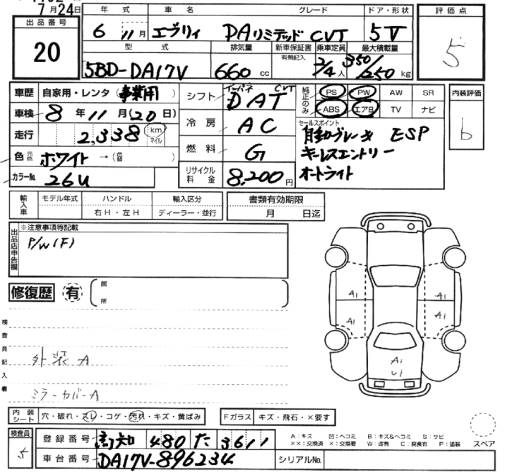 7月24日
出品番号
20
年式 車名 グレード ドア・形状
6年 11月 エヴリィ DAリミテッド CVT 5V
型式 排気量 新車保証書 乗車定員 最大積載量
有無記入
5BD-DA17V 660cc 2/4人 350/250kg
評価点
5
車歴 自家用・レンタ・事業用
車検 8年 11月(20日)
走行 2,338 km マイル
色 ホワイト→(
カラーNo. 26U
シフト インパネ CVT DAT
冷房 AC
燃料 G
リサイクル料金 8,200円
純正のみ PS PW AW SR
ABS エアB TV ナビ
セールスポイント
自動ブレーキ ESP
キーレスエントリー
オートライト
内装評価
b
輸入車 モデル年式 ハンドル 輸入区分
右H・左H ディーラー・並行
書類有効期限
月 日迄
出品店申告欄
※注意事項等記載
P/W(F)
修復歴 有
箇所
検査員記入
外装A
ミラーカバーA
A1 A1
A1
U1
内装シート 穴・破れ・スレ・コゲ・汚れ・キズ・黄ばみ
Fガラス キズ・飛石・×要す
スペア
検査員
5
登録番号 高知 480 た 3611
車台番号 DA17V-896234
シリアルNo.
A:キズ U:ヘコミ B:キズ&ヘコミ S:サビ
××:交換済 X:交換要 W:波 C:腐食 P:塗装